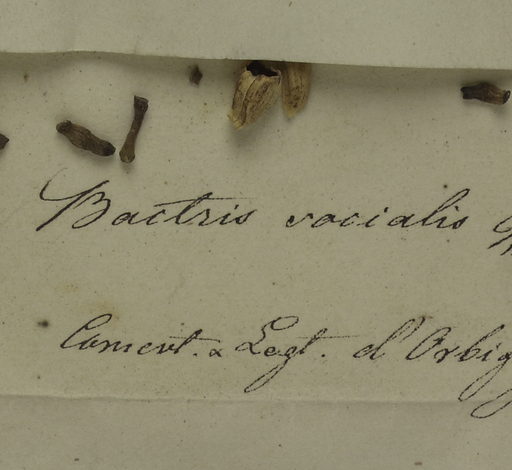 Bactris socialis
& Legt. d'Orbig